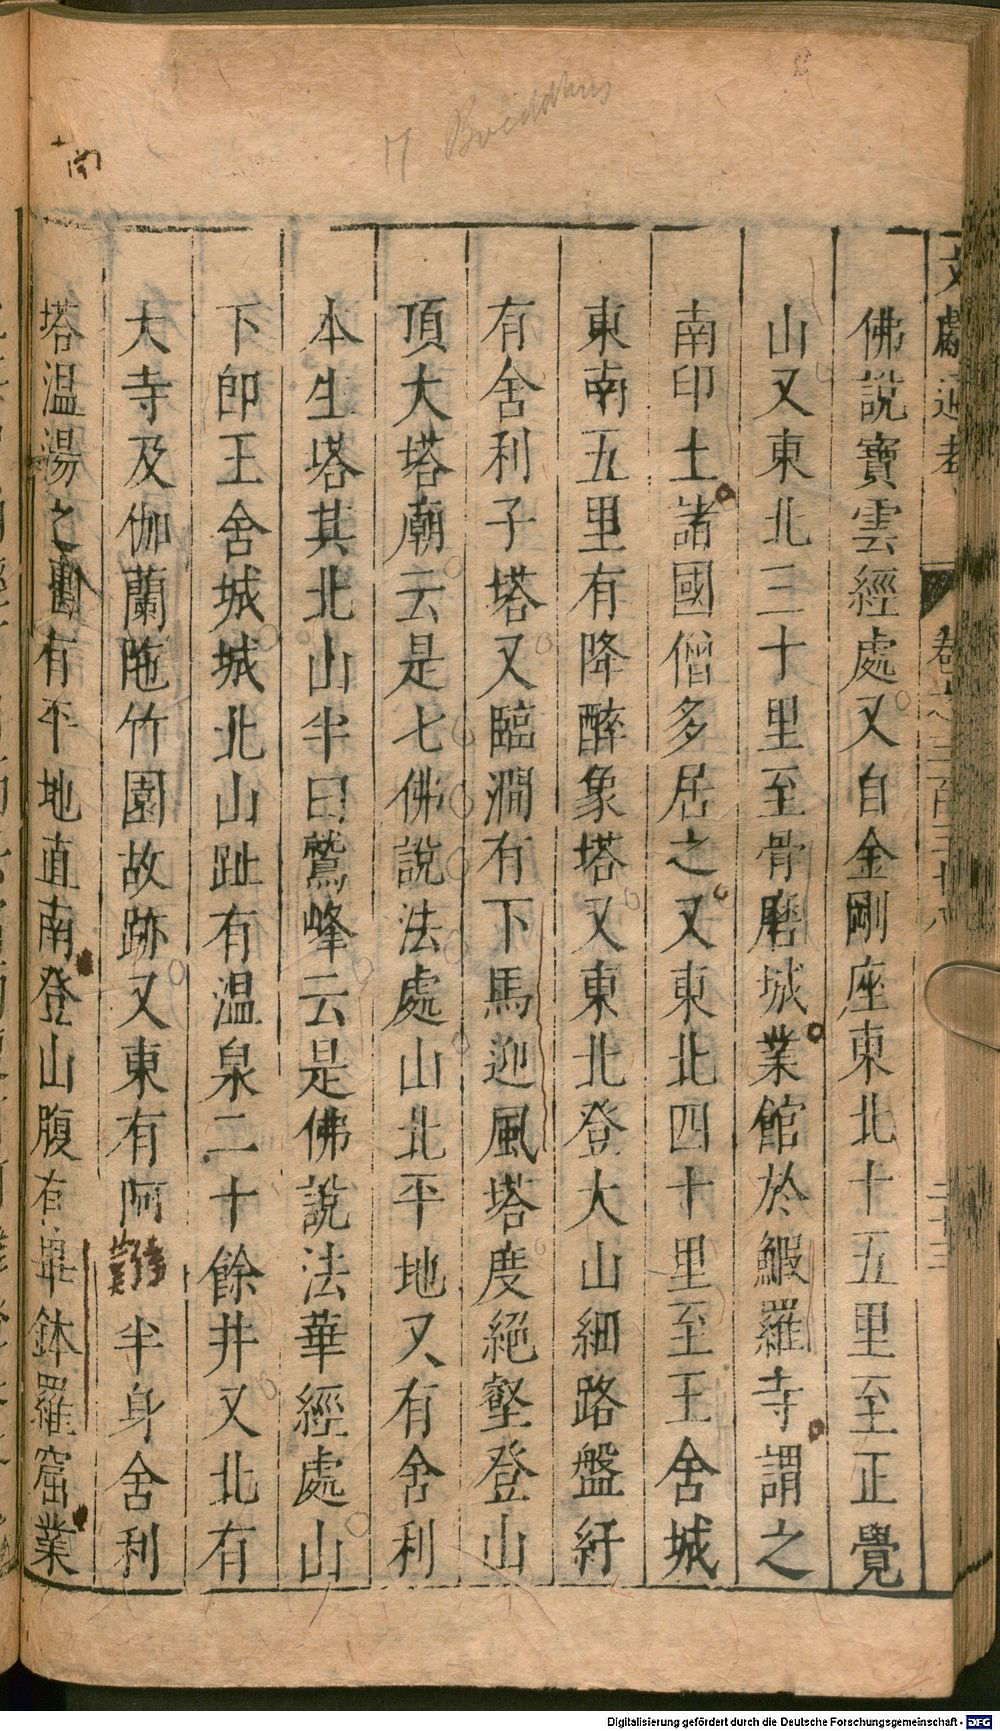 Boeddhus
文獻通考
卷之三百三十八
二十三
佛說寶雲經處又自金剛座東北十五里至正覺
山又東北三十里至骨磨城業館於鰕羅寺謂之
南印土諸國僧多居之又東北四十里至王舍城
東南五里有降醉象塔又東北登大山細路盤紆
有舍利子塔又臨澗有下馬迎風塔度絕壑登山
頂大塔廟云是七佛說法處山北平地又有舍利
本生塔其北山半曰鷲峰云是佛說法華經處山
下即王舍城城北山趾有温泉二十餘井又北有
大寺及伽蘭陁竹園故跡又東有阿難半身舍利
塔温湯之西有平地直南登山腹有畢鉢羅窟業
Digitalisierung gefördert durch die Deutsche Forschungsgemeinschaft - DFG